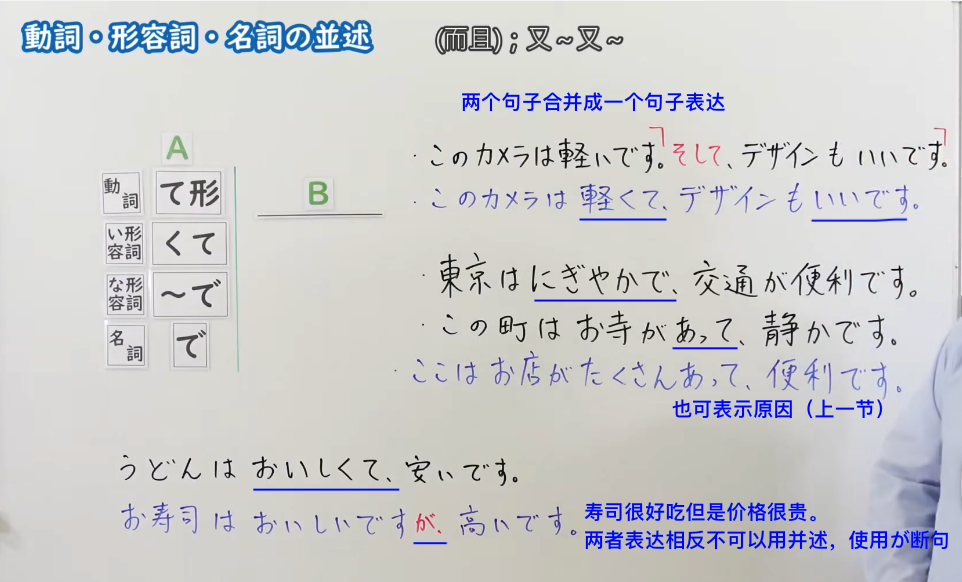 動詞・形容詞・名詞の並述
(而且)；又～又～
两个句子合并成一个句子表达
A
動詞 て形
い形容詞 くて
な形容詞 ～で
名詞 で
B
・このカメラは軽いです。そして、デザインもいいです。
・このカメラは軽くて、デザインもいいです。
・東京はにぎやかで、交通が便利です。
・この町はお寺があって、静かです。
・ここはお店がたくさんあって、便利です。
也可表示原因（上一节）
うどんはおいしくて、安いです。
お寿司はおいしいですが、高いです。
寿司很好吃但是价格很贵。
两者表达相反不可以用并述，使用が断句